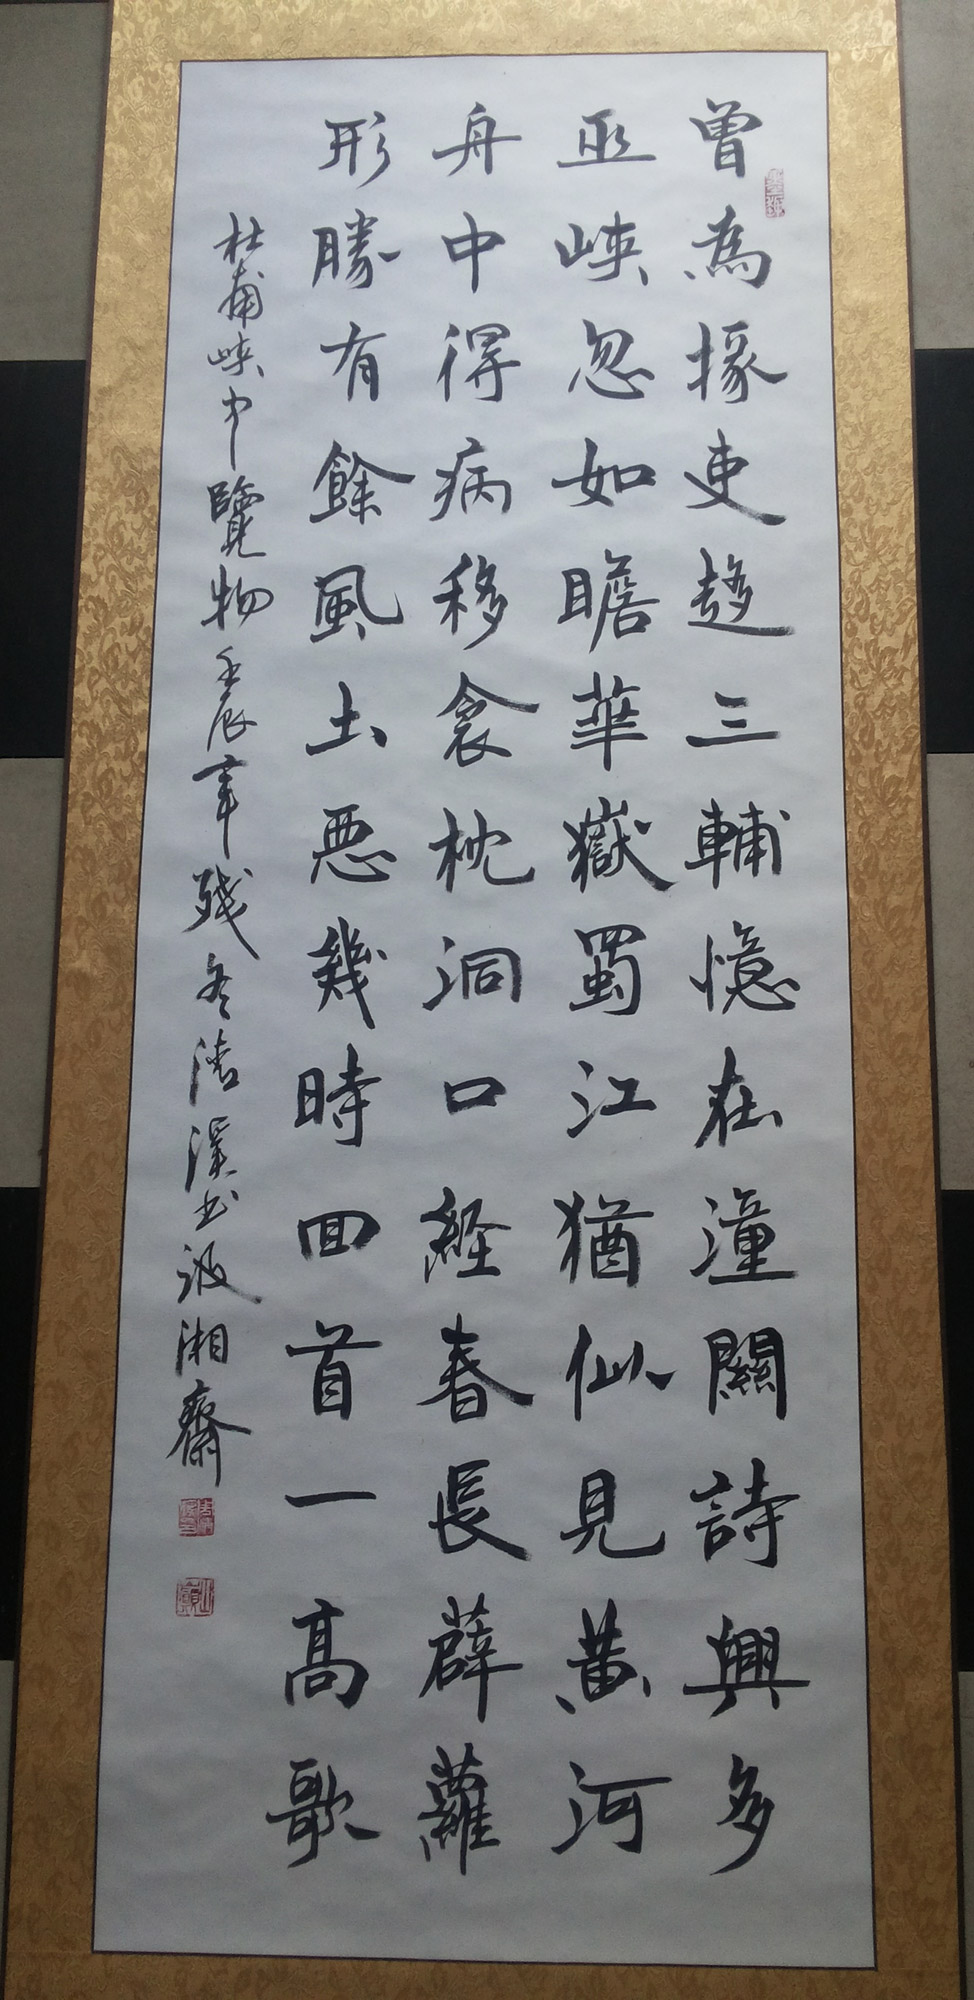 曾為掾吏趍三輔憶在潼關詩興多
巫峽忽如瞻華嶽蜀江猶似見黃河
舟中得病移衾枕洞口経春長薜蘿
形勝有餘風土悪幾時回首一高歌
杜甫峡中覽物壬辰年残冬清溪书汲湘齋